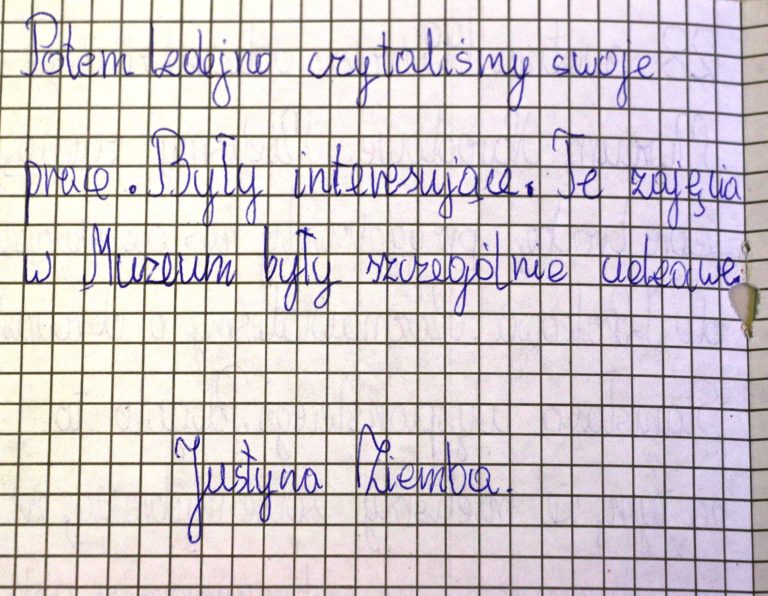 Potem kolejno czytaliśmy swoje
prace. Były interesujące. Te zajęcia
w Muzeum były szczególnie ciekawe.
Justyna Ziemba.